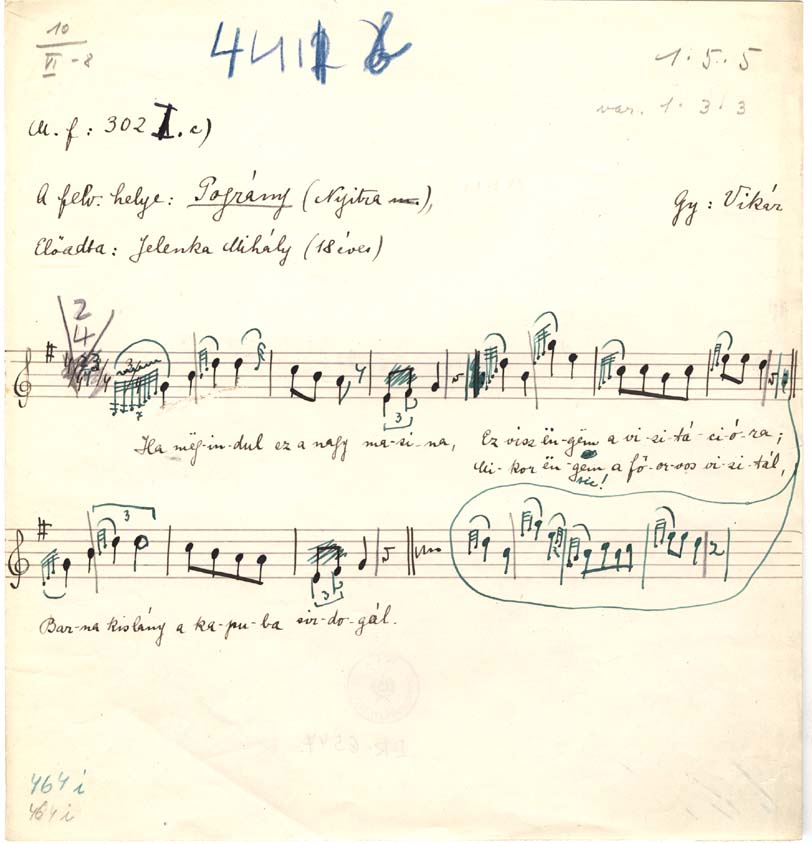 10
VI - 8
1. 5. 5
var. 1. 3. 3
M. f: 302 I. c)
A felv. helye: Pográny (Nyitra m.),
Gy: Vikár
Előadta: Jelenka Mihály (18 éves)
2
4
3
3
Ha mëg-in-dul ez a nagy ma-si-na, Ez visz ën-gëm a vi-si-tá-ci-ó-ra;
Mi-kor ën-gëm a fő-or-vos vi-si-tál,
sic!
3
3
Bar-na kislány a ka-pu-ba sir-do-gál.
464 i
464 i